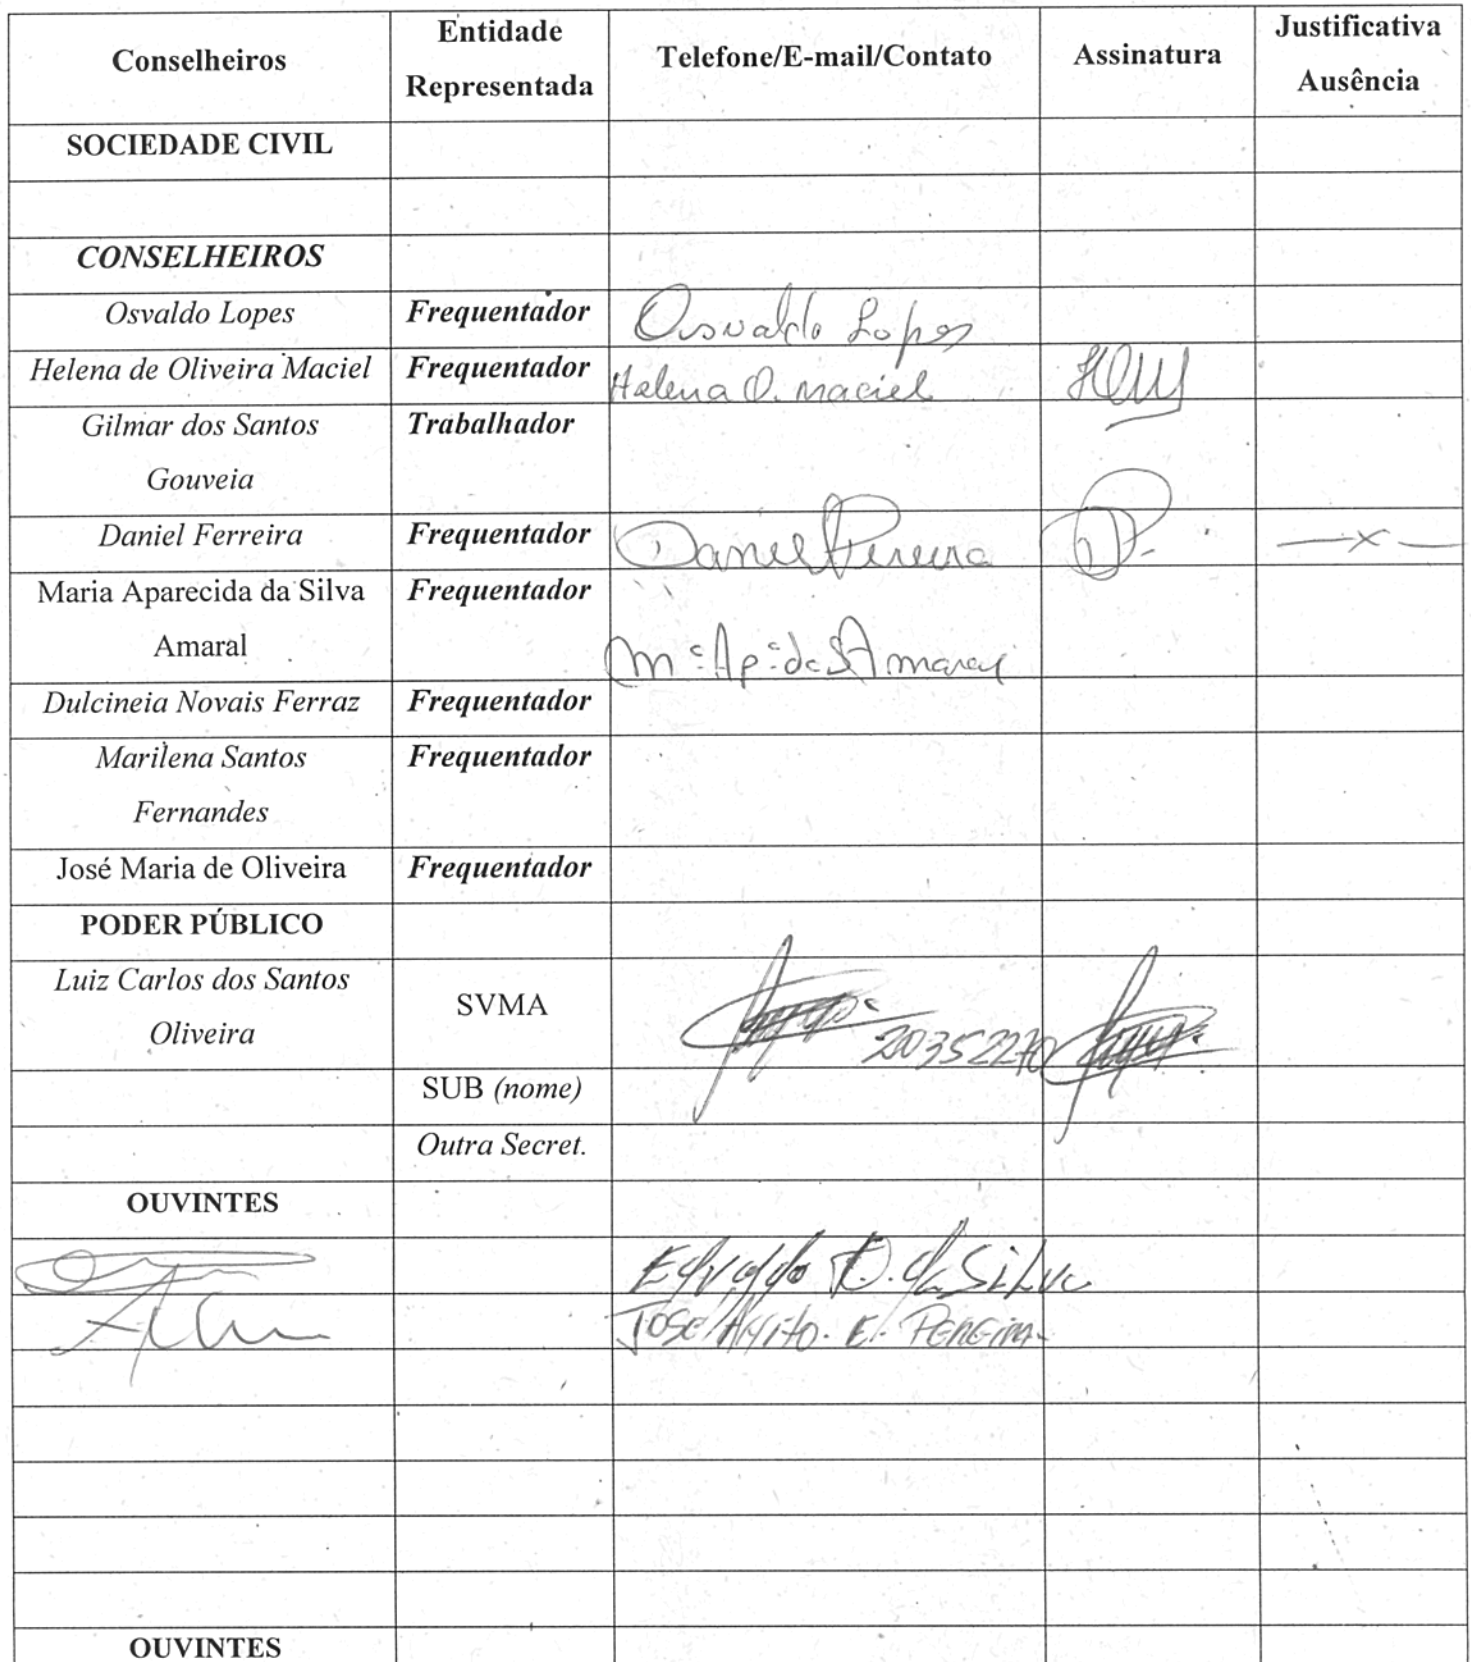 Conselheiros Entidade Representada Telefone/E-mail/Contato Assinatura Justificativa Ausência
SOCIEDADE CIVIL
CONSELHEIROS
Osvaldo Lopes Frequentador Osvaldo Lopes
Helena de Oliveira Maciel Frequentador Helena O. Maciel HOM
Gilmar dos Santos Trabalhador
Gouveia
Daniel Ferreira Frequentador Daniel Pereira DP. —x—
Maria Aparecida da Silva Frequentador
Amaral Mª Apª da S Amaral
Dulcineia Novais Ferraz Frequentador
Marilena Santos Frequentador
Fernandes
José Maria de Oliveira Frequentador
PODER PÚBLICO
Luiz Carlos dos Santos
Oliveira SVMA 20352270
SUB (nome)
Outra Secret.
OUVINTES
Edvaldo D. da Silva
JOSE E. PEREIRA
OUVINTES